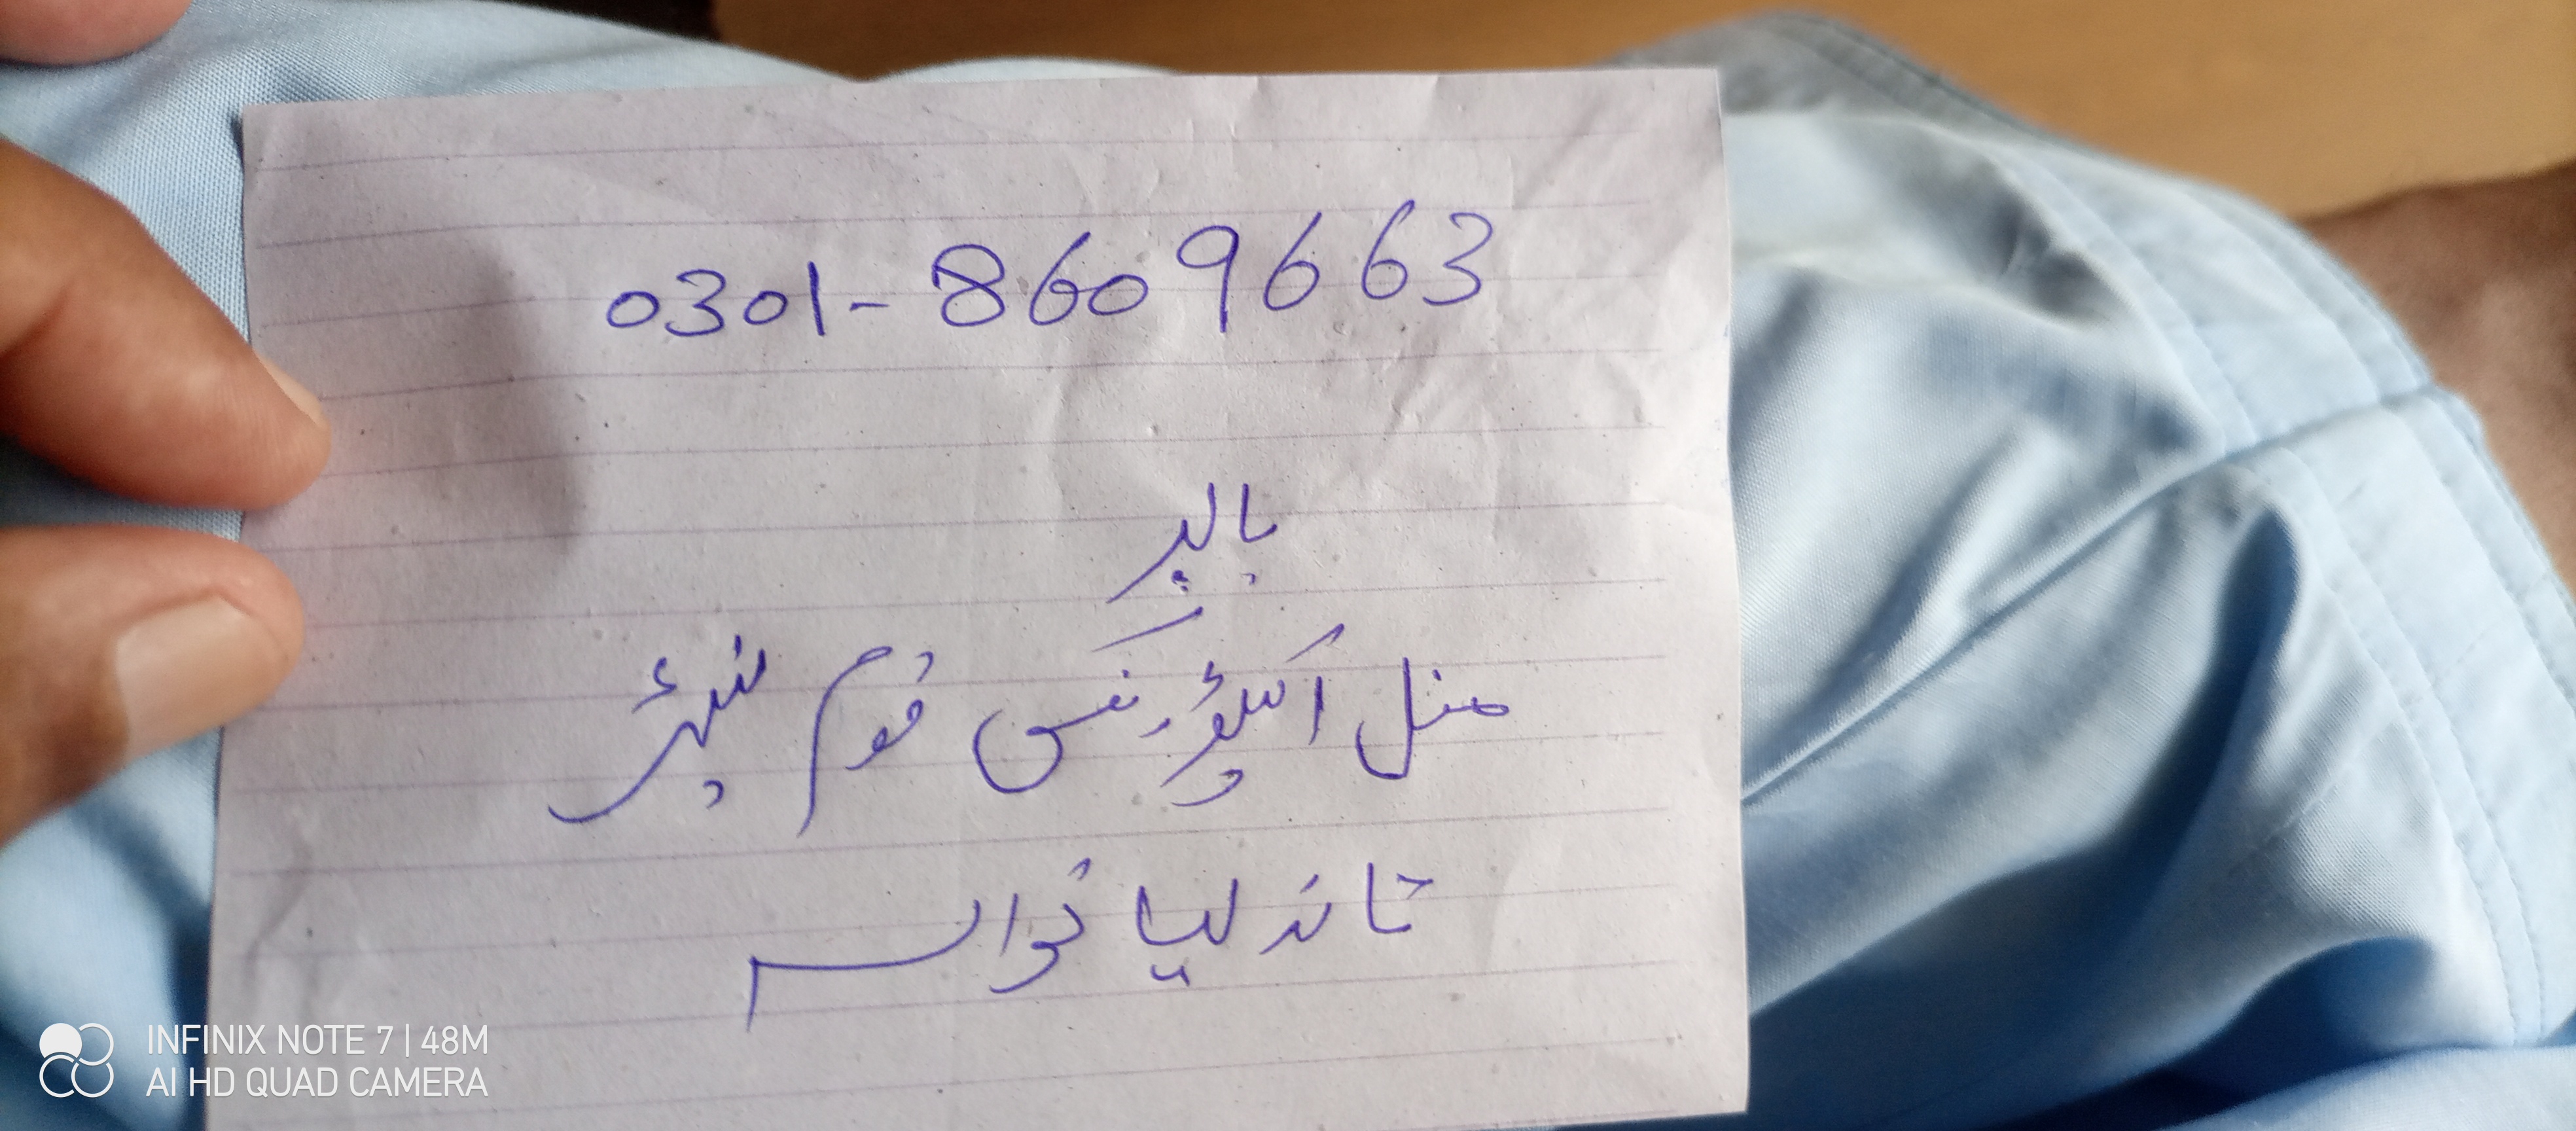 0301-8609663
بالپر
مغل الیکٹرونکس فوم سنٹر
تاندلیانوالہ
INFINIX NOTE 7 | 48M
AI HD QUAD CAMERA